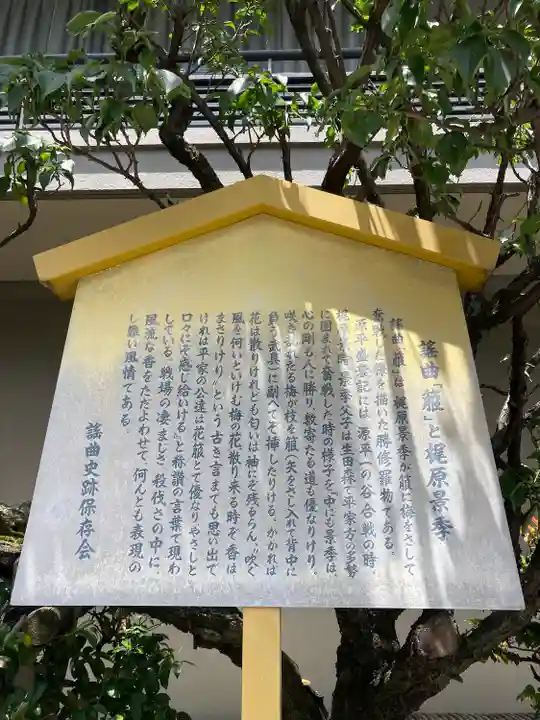 謡曲「箙」と梶原景季
謡曲「箙」は、梶原景季が箙に梅をさして
奮戦した様を描いた勝修羅物である。
源平盛衰記には、源平一の谷合戦の時、
梶原景時・景季父子は生田の森で平家方の多勢
に囲まれて奮戦した時の様子を『中にも景季は、
心の剛も人に勝り、数寄たる道も優なりけり。
咲き乱れたる梅が枝を箙（矢をさし入れて背中に
負う武具）に副へてそ挿したりける。かかれば
花は散りけれども匂いは袖にぞ残るらん。〝吹く
風を何いといけむ梅の花、散り来る時ぞ香は
まさりけり〟という古き言までも思い出て
ければ平家の公達は花箙とて優なり、やさしと
口々にぞ感じ給いける』と称讃の言葉で現わ
している。戦場の凄まじさ、殺伐さの中に、
風流な香をただよわせて、何んとも表現の
し難い風情である。
謡曲史跡保存会